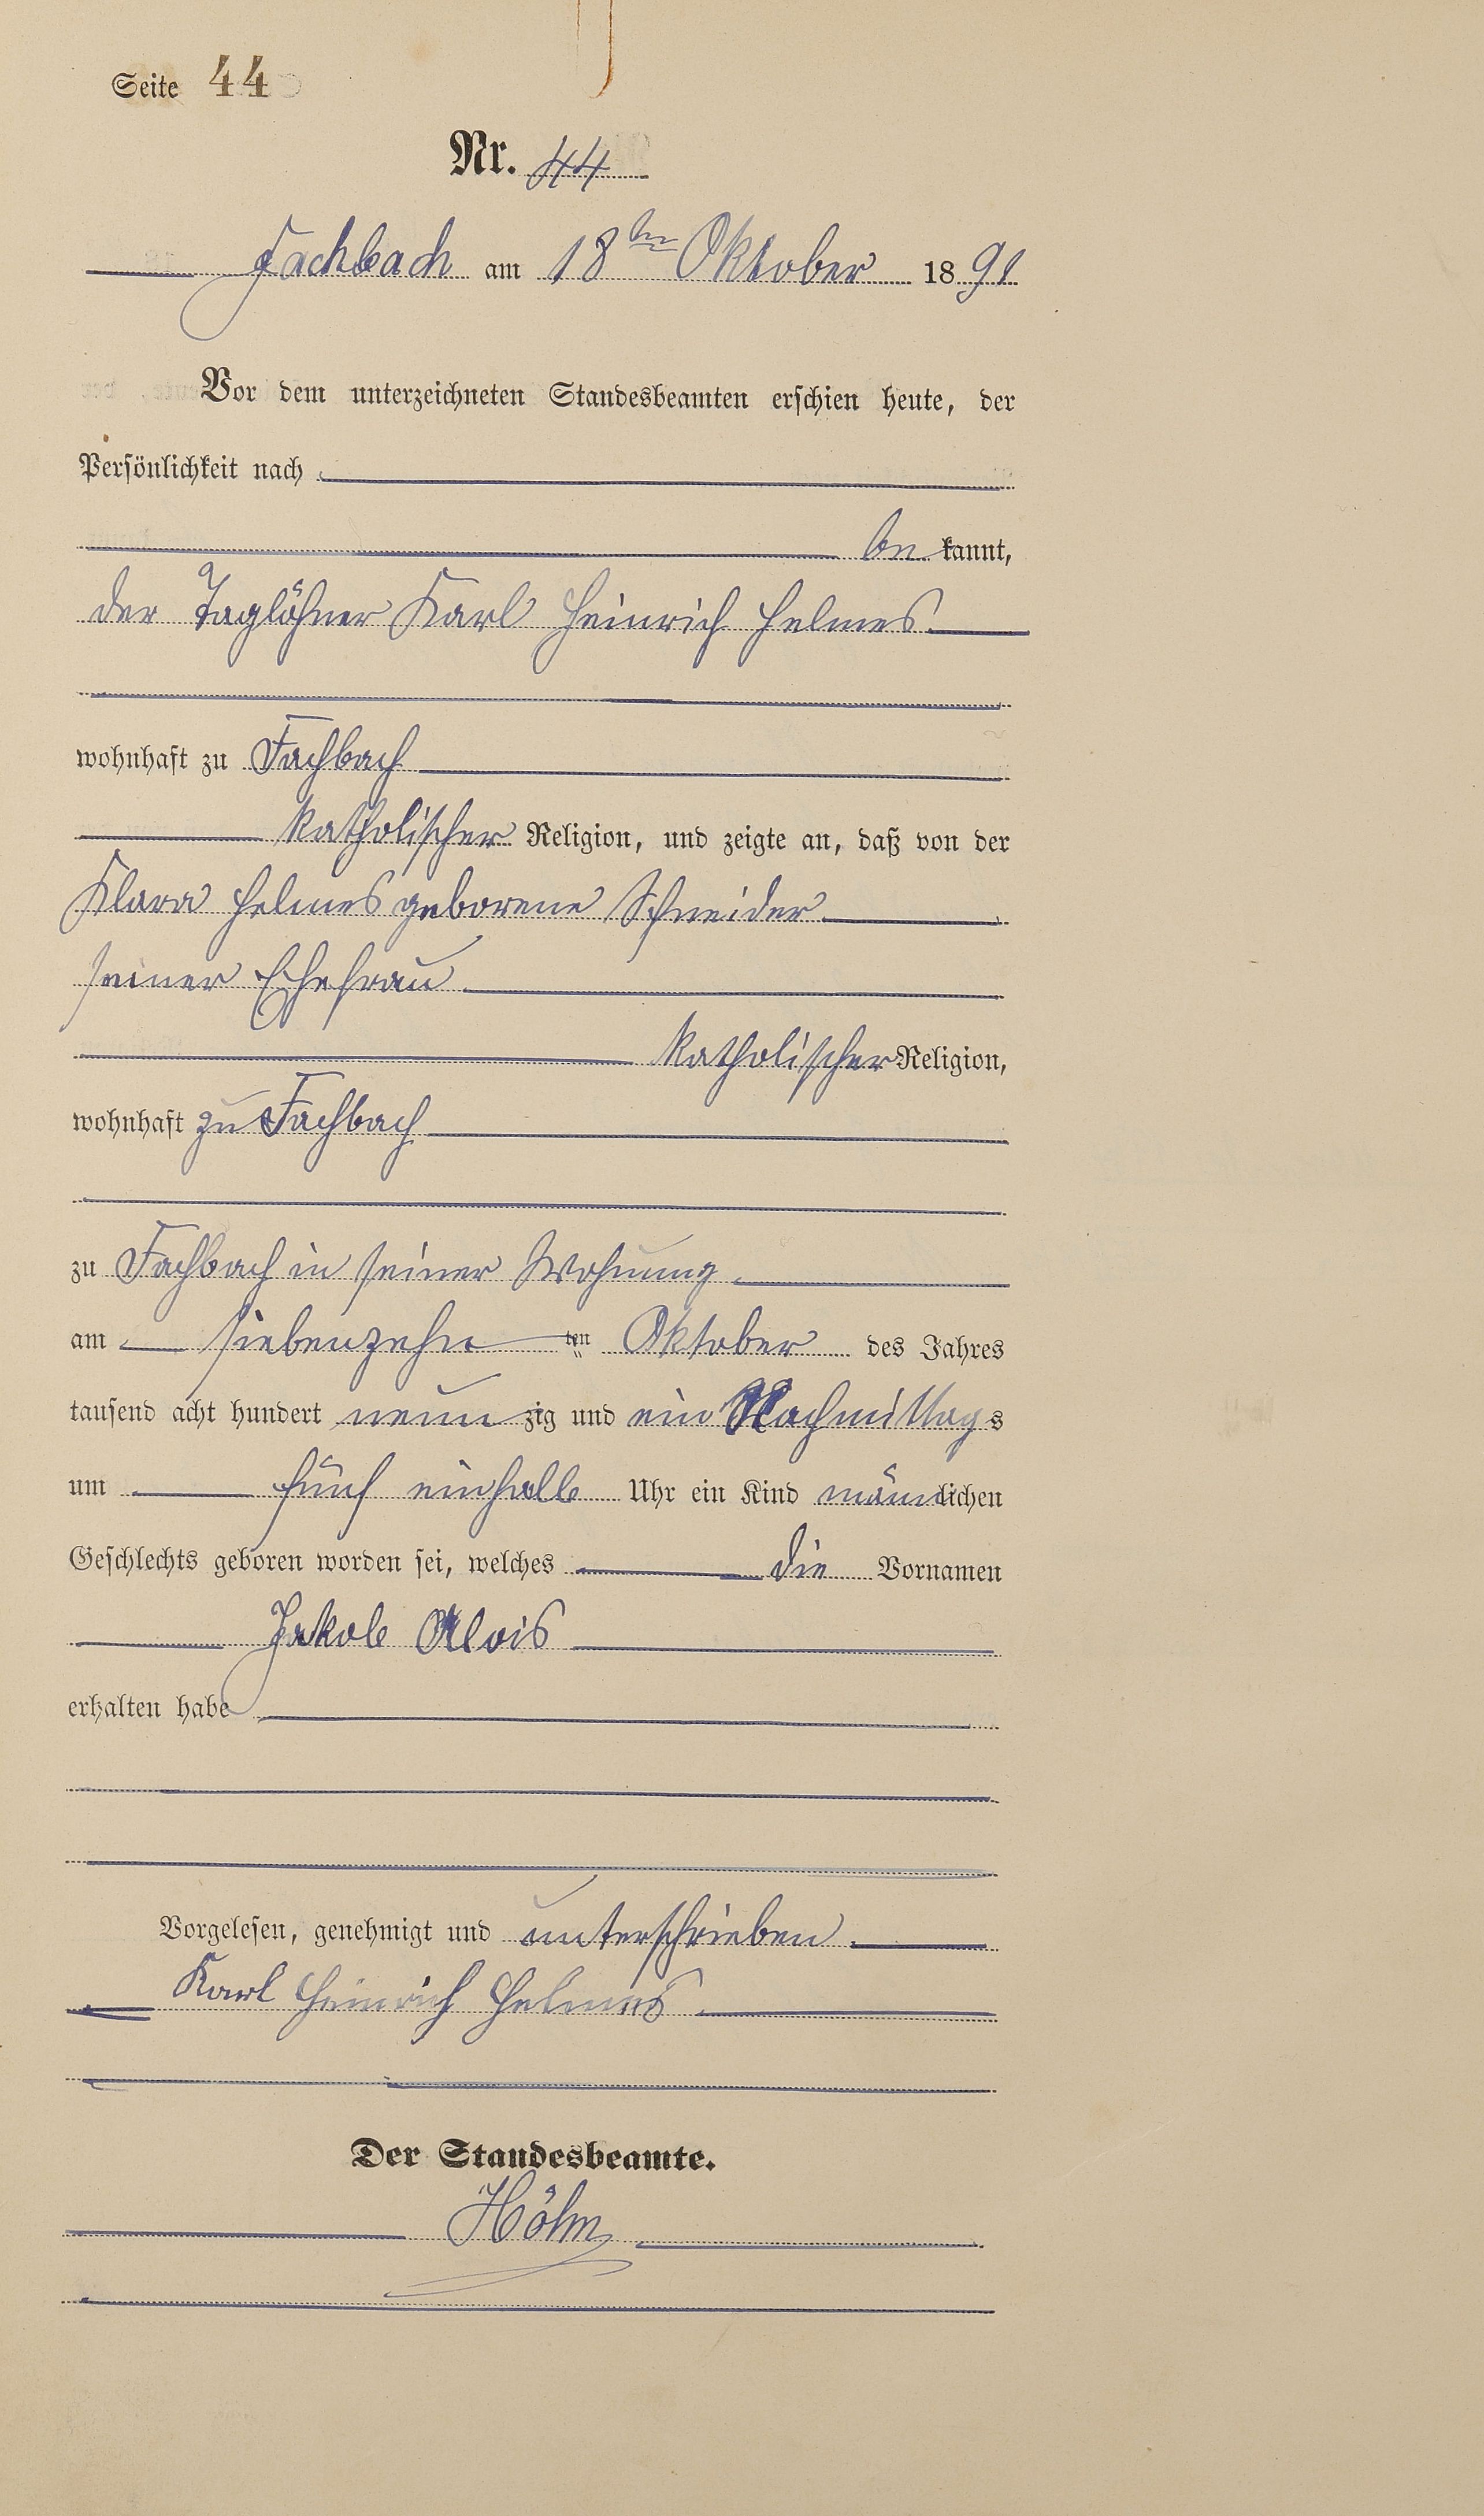 Seite 44
Nr. 44
Fachbach am 18ten Oktober 1891
Vor dem unterzeichneten Standesbeamten erschien heute, der
Persönlichkeit nach
be kannt,
der Taglöhner Karl Heinrich Helmes
wohnhaft zu Fachbach
katholischer Religion, und zeigte an, daß von der
Klara Helmes geborene Schneider
seiner Ehefrau
katholischer Religion,
wohnhaft zu Fachbach
zu Fachbach in seiner Wohnung
am siebenzehn ten Oktober des Jahres
tausend acht hundert neun zig und ein Nachmittags
um fünf einhalb Uhr ein Kind männlichen
Geschlechts geboren worden sei, welches die Vornamen
Jakob Alois
erhalten habe
Vorgelesen, genehmigt und unterschrieben.
Karl Heinrich Helmes.
Der Standesbeamte.